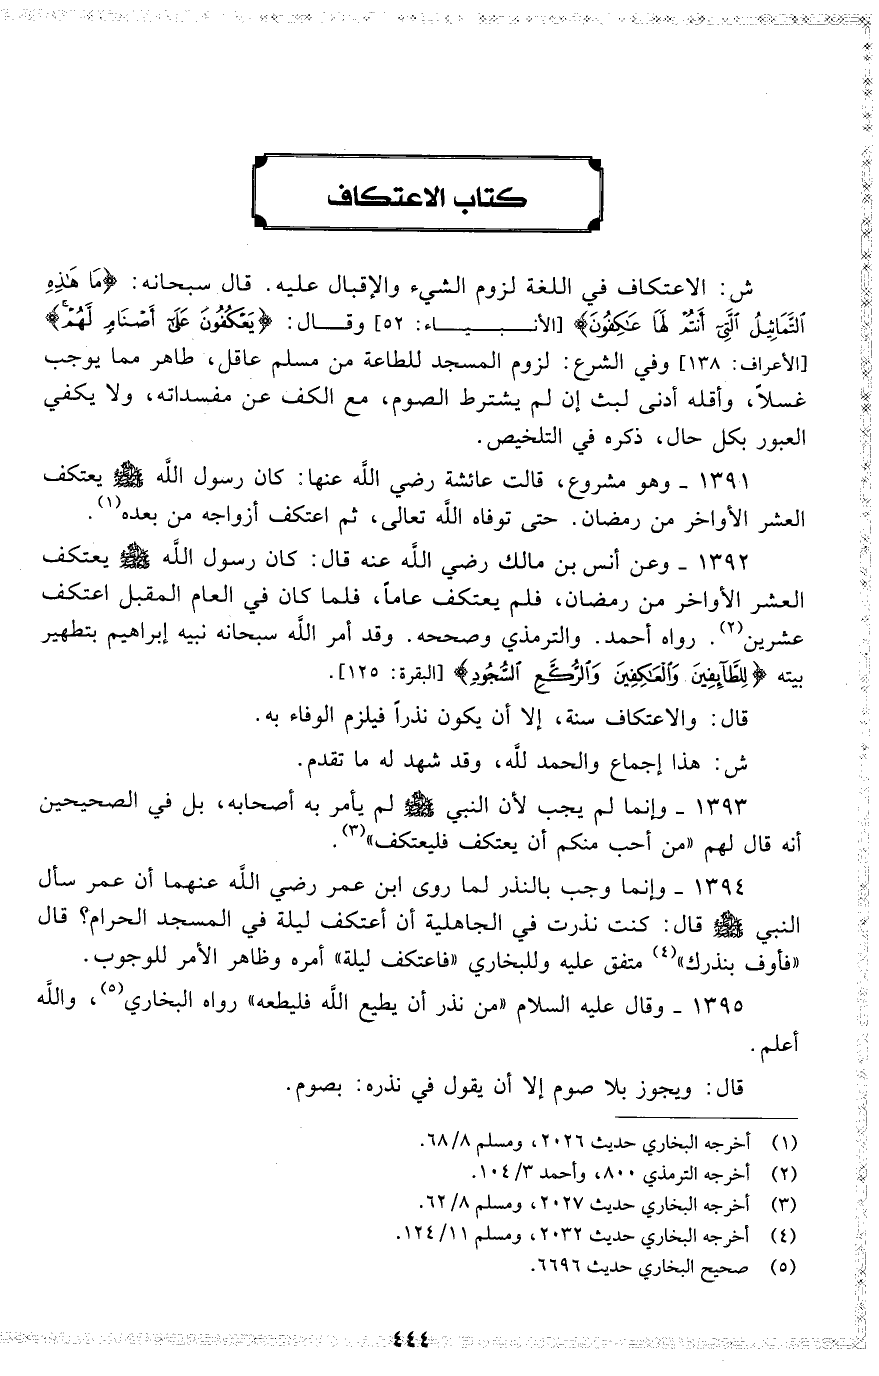 كتاب الاعتكاف
ش: الاعتكاف في اللغة لزوم الشيء والإقبال عليه. قال سبحانه: ﴿مَا هَٰذِهِ
ٱلتَّمَاثِيلُ ٱلَّتِيٓ أَنتُمْ لَهَا عَٰكِفُونَ﴾ [الأنـبـيـاء: ٥٢] وقـال: ﴿يَعْكُفُونَ عَلَىٰٓ أَصْنَامٍ لَّهُمْ﴾
[الأعراف: ١٣٨] وفي الشرع: لزوم المسجد للطاعة من مسلم عاقل، طاهر مما يوجب
غسلاً، وأقله أدنى لبث إن لم يشترط الصوم، مع الكف عن مفسداته، ولا يكفي
العبور بكل حال، ذكره في التلخيص.
١٣٩١ ـ وهو مشروع، قالت عائشة رضي اللَّه عنها: كان رسول اللَّه ﷺ يعتكف
العشر الأواخر من رمضان. حتى توفاه اللَّه تعالى، ثم اعتكف أزواجه من بعده(١).
١٣٩٢ ـ وعن أنس بن مالك رضي اللَّه عنه قال: كان رسول اللَّه ﷺ يعتكف
العشر الأواخر من رمضان، فلم يعتكف عاماً، فلما كان في العام المقبل اعتكف
عشرين(٢). رواه أحمد. والترمذي وصححه. وقد أمر اللَّه سبحانه نبيه إبراهيم بتطهير
بيته ﴿لِلطَّآئِفِينَ وَٱلْعَٰكِفِينَ وَٱلرُّكَّعِ ٱلسُّجُودِ﴾ [البقرة: ١٢٥].
قال: والاعتكاف سنة، إلا أن يكون نذراً فيلزم الوفاء به.
ش: هذا إجماع والحمد للَّه، وقد شهد له ما تقدم.
١٣٩٣ ـ وإنما لم يجب لأن النبي ﷺ لم يأمر به أصحابه، بل في الصحيحين
أنه قال لهم «من أحب منكم أن يعتكف فليعتكف»(٣).
١٣٩٤ ـ وإنما وجب بالنذر لما روى ابن عمر رضي اللَّه عنهما أن عمر سأل
النبي ﷺ قال: كنت نذرت في الجاهلية أن أعتكف ليلة في المسجد الحرام؟ قال
«فأوف بنذرك»(٤) متفق عليه وللبخاري «فاعتكف ليلة» أمره وظاهر الأمر للوجوب.
١٣٩٥ ـ وقال عليه السلام «من نذر أن يطيع اللَّه فليطعه» رواه البخاري(٥)، واللَّه
أعلم.
قال: ويجوز بلا صوم إلا أن يقول في نذره: بصوم.
(١) أخرجه البخاري حديث ٢٠٢٦، ومسلم ٦٨/٨.
(٢) أخرجه الترمذي ٨٠٠، وأحمد ١٠٤/٣.
(٣) أخرجه البخاري حديث ٢٠٢٧، ومسلم ٦٢/٨.
(٤) أخرجه البخاري حديث ٢٠٣٢، ومسلم ١٢٤/١١.
(٥) صحيح البخاري حديث ٦٦٩٦.
٤٤٤